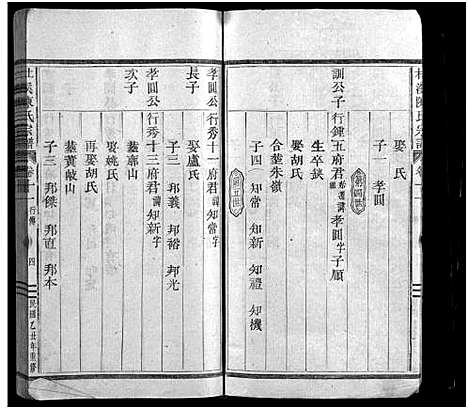 杜溪陳氏宗譜
卷十一
娶 氏
子一 孝圓
第四世
訓公子 行鍾五府君 諱孝圓字子順
生卒缺
娶胡氏
合葬朱嶺
子四 知常 知新 知禮 知機
第五世
孝圓公長子 行秀十一府君 諱知常字
娶盧氏
子三 邦義 邦裕 邦光
孝圓公次子 行秀十三府君 諱知新字
葬廓山
娶姚氏
再娶胡氏
葬黃敝山
子三 邦傑 邦直 邦本
杜溪陳氏宗譜
卷十一 行傳
四
民國乙丑年重修